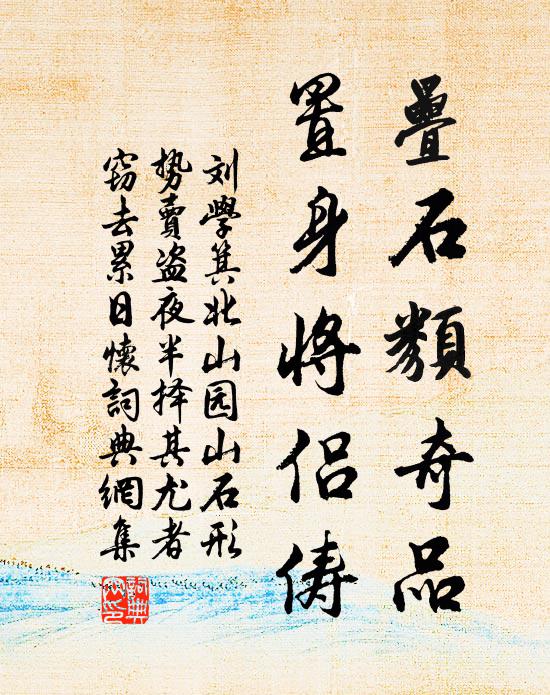 疊石類奇品
置身將侶儔
刘學箕北山园山石形
势賣盗夜半择其尤者
窃去累日懷詞典網集
詞典網印